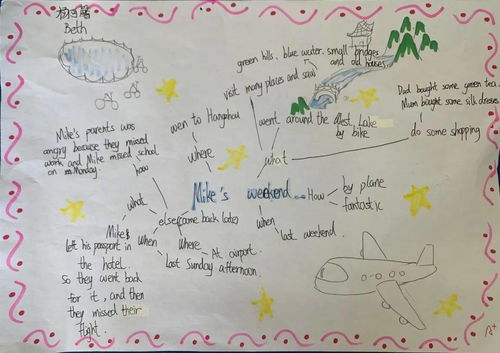 Beth
green hills, blue water, small bridges
and old houses.
visit many places and saw
Dad bought some green tea.
Mum bought some silk dresses.
wen to Hangzhou
went around the West Lake
by bike
do some shopping
where
what
Mike's parents was
angry because they missed
work and Mike missed school
on Monday.
how
Mike's weekend...
How
by plane
fantastic
when
last weekend.
what
else (came back late)
Mike
left his passport in
the hotel.
so they went back
for it, and then
they missed their
flight.
when
Last Sunday afternoon.
Where
At airport.
A+